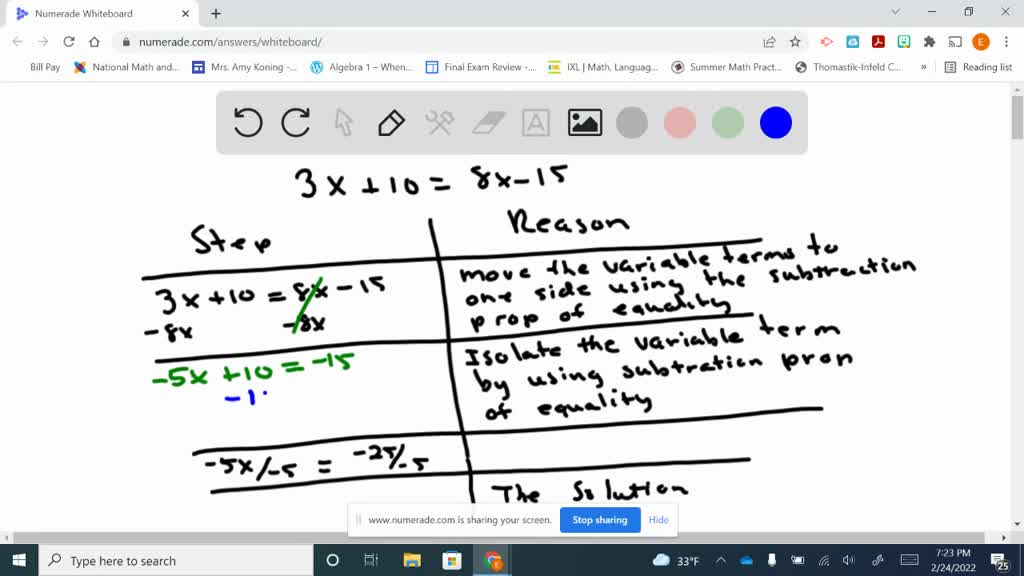 Numerade Whiteboard
numerade.com/answers/whiteboard/
E
Bill Pay National Math and... Mrs. Amy Koning -... Algebra 1 – When... Final Exam Review -... IXL | Math, Languag... Summer Math Pract... Thomastik-Infeld C... » Reading list
A
3x + 10 = 8x - 15
Step Reason
3x + 10 = 8x - 15
-8x -8x
move the variable terms to
one side using the subtraction
prop of equality
-5x + 10 = -15
-1
Isolate the variable term
by using subtration prop
of equality
-5x/-5 = -25/-5
The Solution
www.numerade.com is sharing your screen. Stop sharing Hide
Type here to search
33°F
7:23 PM
2/24/2022
25